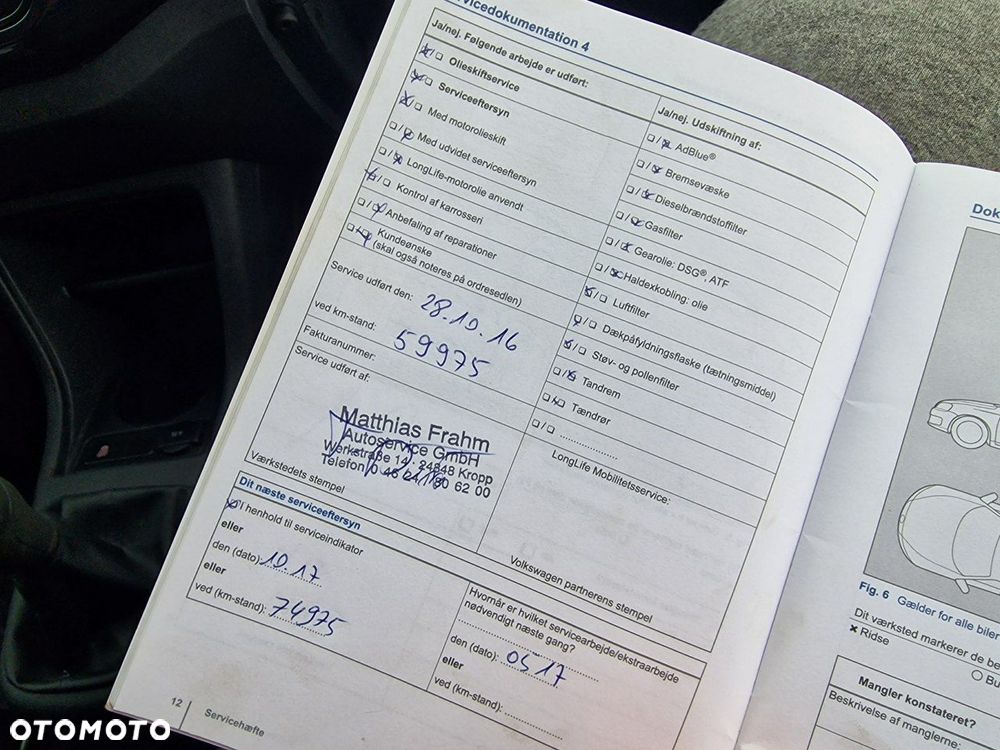 vicedokumentation 4
Ja/nej. Følgende arbejde er udført:
□/□ Olieskiftservice
□/□ Serviceeftersyn
□/□ Med motorolieskift
□/□ Med udvidet serviceeftersyn
□/□ LongLife-motorolie anvendt
□/□ Kontrol af karrosseri
□/□ Anbefaling af reparationer
□/□ Kundeønske
(skal også noteres på ordresedlen)
Service udført den: 28.10.16
ved km-stand: 59975
Fakturanummer:
Service udført af:
Matthias Frahm
Autoservice GmbH
Werkstraße 14 · 24848 Kropp
Telefon 0 46 24 / 80 62 00
Værkstedets stempel
Ja/nej. Udskiftning af:
□/□ AdBlue®
□/□ Bremsevæske
□/□ Dieselbrændstoffilter
□/□ Gasfilter
□/□ Gearolie: DSG®, ATF
□/□ Haldexkobling: olie
□/□ Luftfilter
□/□ Dækpåfyldningsflaske (tætningsmiddel)
□/□ Støv- og pollenfilter
□/□ Tandrem
□/□ Tændrør
□/□ ....................
LongLife Mobilitetsservice:
Volkswagen partnerens stempel
Dit næste serviceeftersyn
I henhold til serviceindikator
eller
den (dato): 10.17
eller
ved (km-stand): 74975
Hvornår er hvilket servicearbejde/ekstraarbejde
nødvendigt næste gang?
den (dato): 05 17
eller
ved (km-stand):
12
Servicehæfte
Dok
Fig. 6 Gælder for alle biler
Dit værksted markerer de be
× Ridse
○ Bu
Mangler konstateret?
Beskrivelse af manglerne:
OTOMOTO